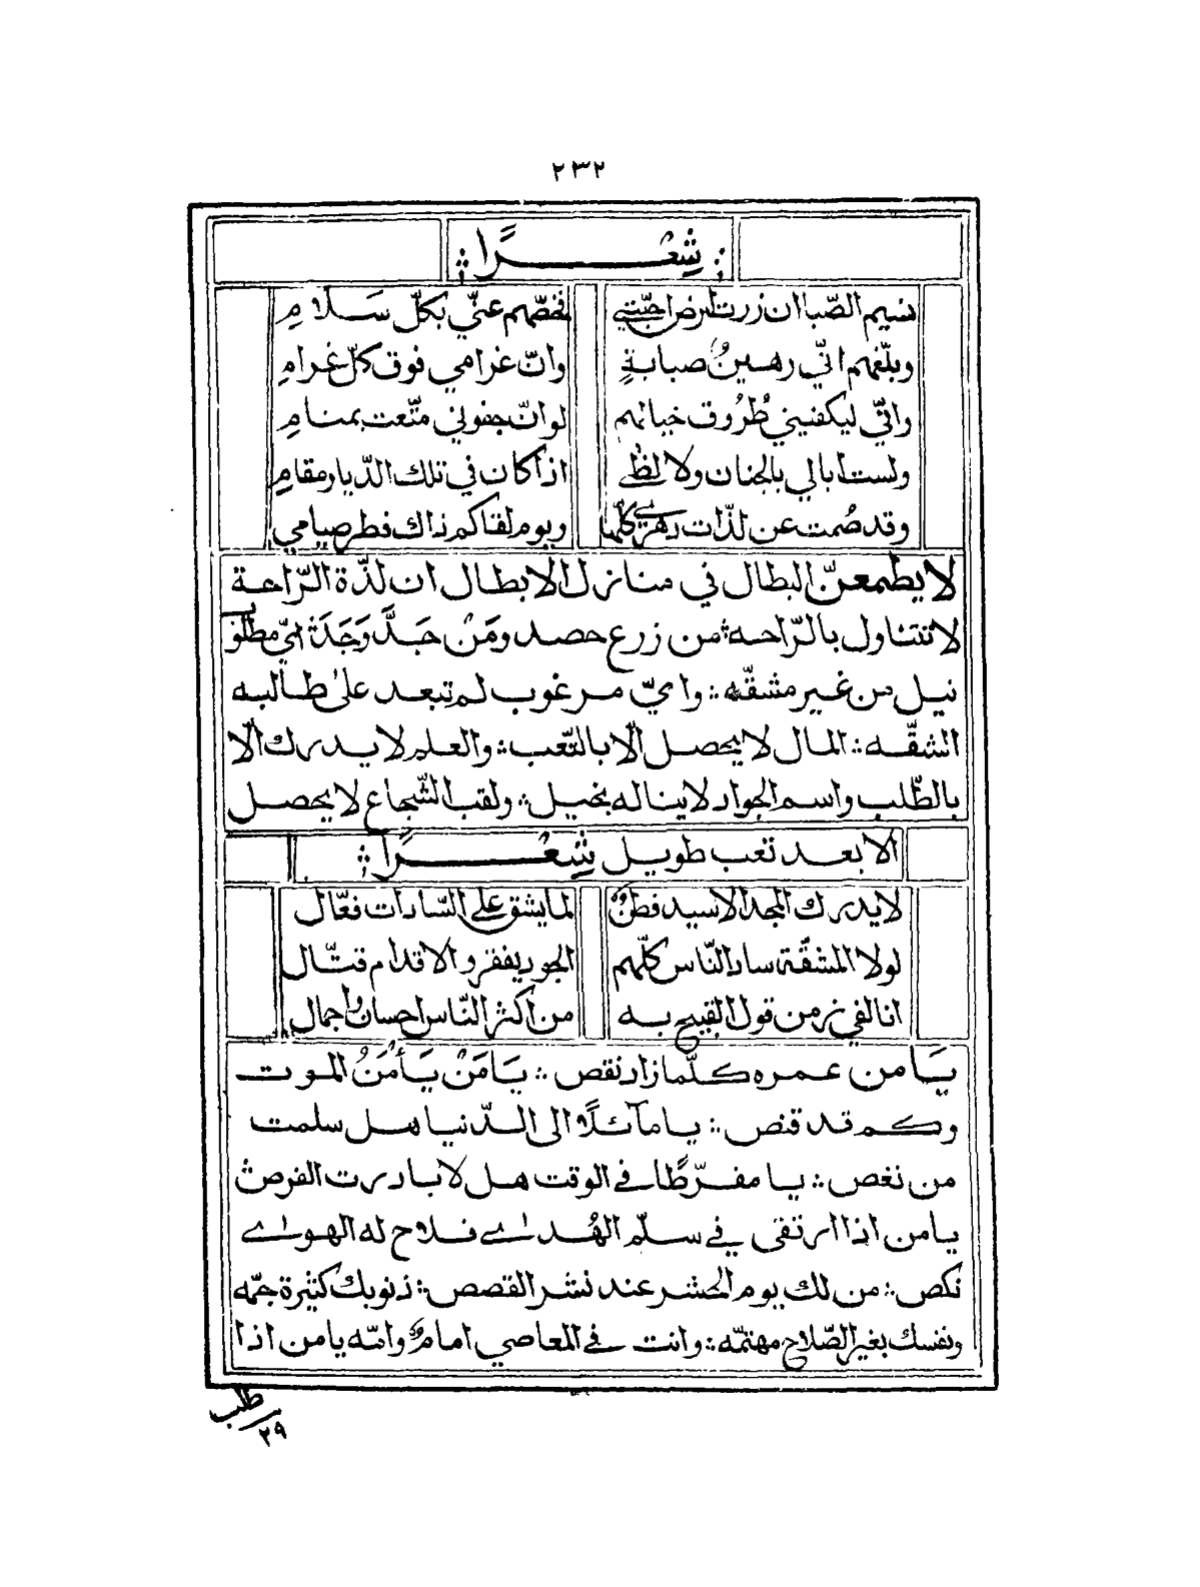 ٢٣٢
شِعْرًا
نسيم الصّبا ان زرت ارض احبّتي فخصّهم عنّي بكلّ سَلامِ
وبلّغهم انّي رهينُ صبابةٍ وانّ غرامي فوق كلّ غرامِ
وانّي ليكفيني طُرُوق خيالهم لو انّ جفوني متّعت بمنامِ
ولست ابالي بالجنان ولا لظى اذا كان في تلك الدّيار مقامِ
وقد صُمت عن لذّات دهري كلّها ويوم لقاكم ذاك فطر صيامي
لا يطمعنّ البطال في منازل الابطال ان لذّة الرّاحة
لا تتناول بالرّاحه ؞ من زرع حصد ومَنْ جَدَّ وَجَدَ ؞ ايّ مطلوب
نيل من غير مشقّه ؞ وايّ مرغوب لم تبعد على طالبه
الشقّه ؞ المال لا يحصل الّا بالتّعب ؞ والعلم لا يدرك الّا
بالطّلب واسم الجواد لا يناله بخيل ؞ ولقب الشّجاع لا يحصل
الا بعد تعب طويل شِعْرًا
لا يدرك المجد الا سيد فطنٌ لما يشق على السّادات فعّال
لولا المشقّة ساد النّاس كلّهم الجود يفقر والاقدام قتّال
انا لفي زمن قول القبيح به من اكثر النّاس احسان واجمال
يَا من عمره كلّما زاد نقص ؞ يَا مَنْ يَأْمَنُ الموت
وكم قد قنص ؞ يا مآئلًا الى الدّنيا هل سلمت
من نغص ؞ يا مفرّطًا في الوقت هل لا بادرت الفرص ؞
يا من اذا ارتقى في سلّم الهُدى فلاح له الهوى
نكص ؞ من لك يوم الحشر عند نشر القصص ؞ ذنوبك كثيرة جمّه
ونفسك بغير الصّلاح مهتمّه ؞ وانت في المعاصي امام وامّه يا من اذا
طلب
٢٩